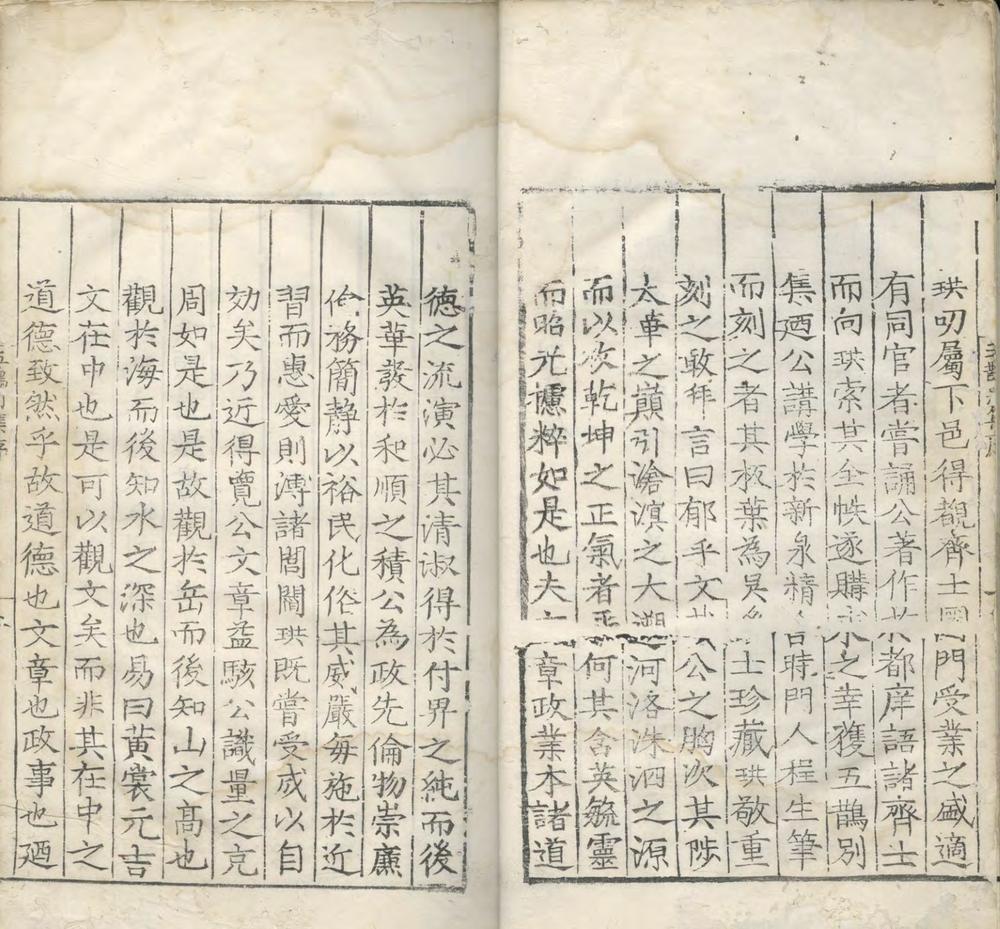 珙叨屬下邑得覩齊士國門受業之盛適
有同官者嘗誦公著作於都庠語諸齊士
而向珙索其全帙遂購求之幸獲五鵲別
集廼公講學於新泉精舍時門人程生筆
而刻之者其板葉為吳士珍藏珙敬重
刻之敢拜言曰郁乎文哉公之胸次其陟
太華之巔引滄溟之大溯河洛洙泗之源
而以收乾坤之正氣者乎何其含英毓靈
而昭光攄粹如是也夫文章政業本諸道
德之流演必其清淑得於付畀之純而後
英華發於和順之積公為政先倫物崇廉
俭務簡靜以裕民化俗其威嚴每施於近
習而惠愛則溥諸閭閻珙既嘗受成以自
効矣乃近得覽公文章益駭公識量之克
周如是也是故觀於岳而後知山之高也
觀於海而後知水之深也易曰黃裳元吉
文在中也是可以觀文矣而非其在中之
道德致然乎故道德也文章也政事也廼